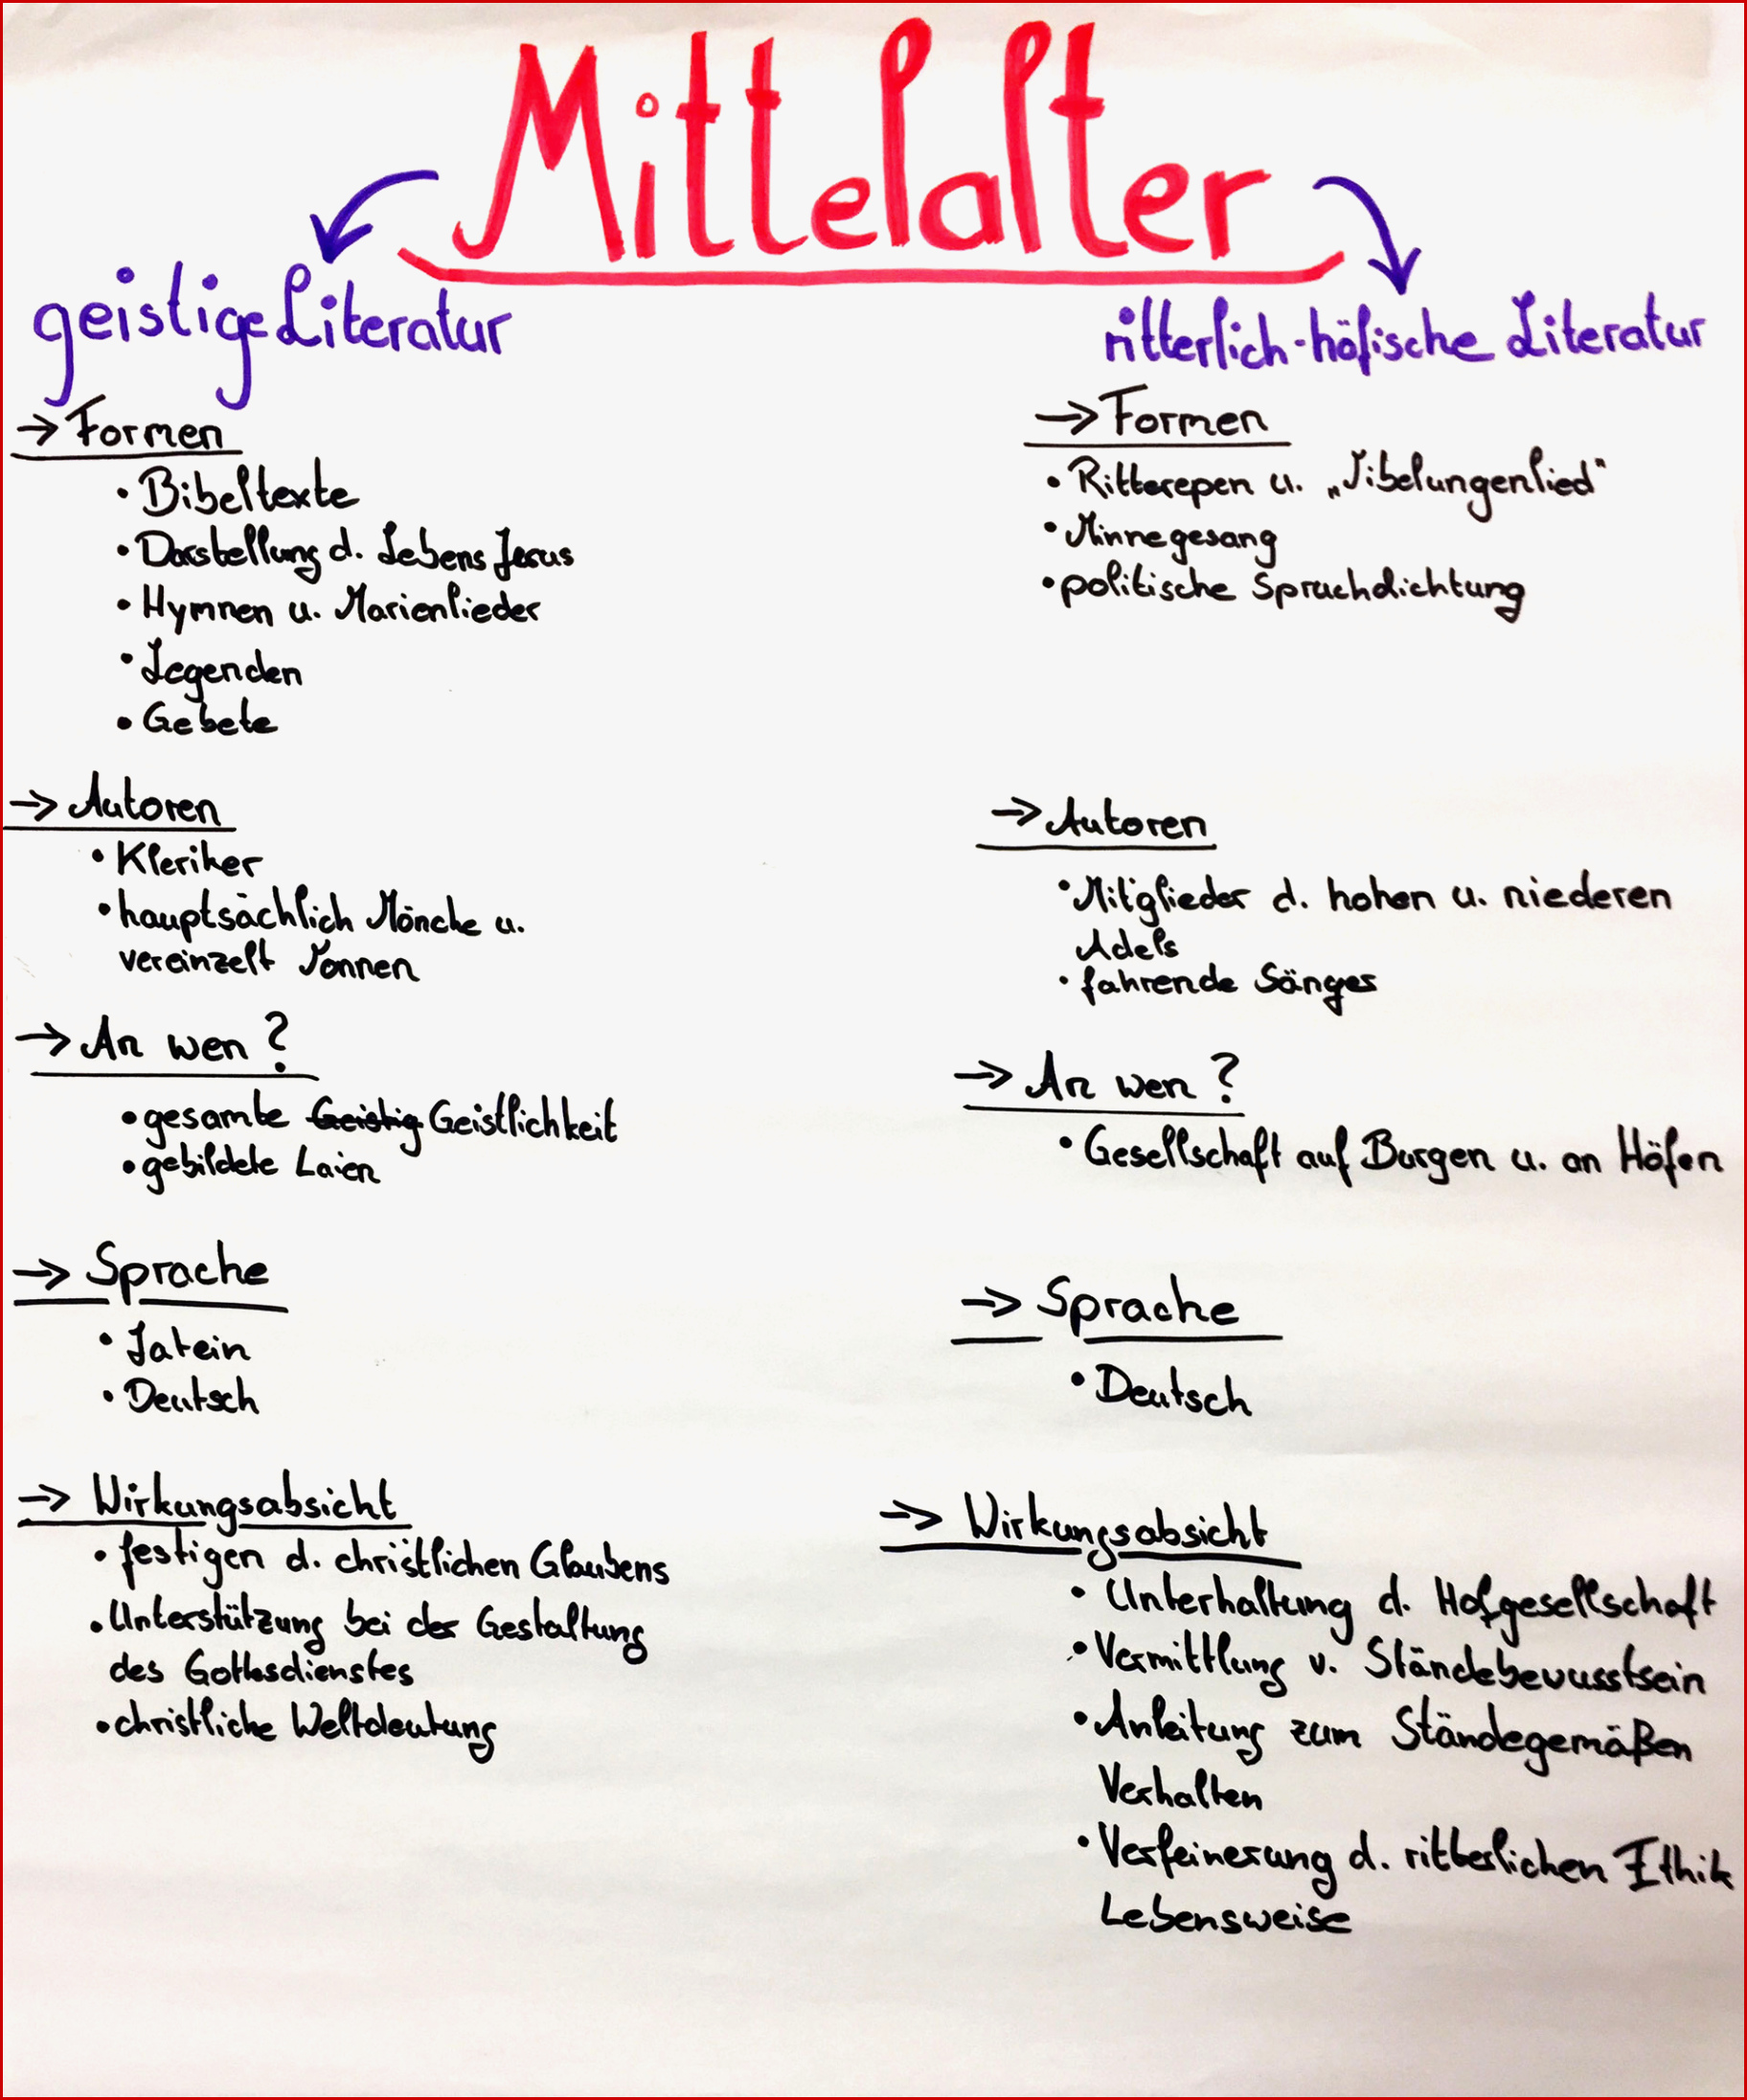 Mittelalter
geistige Literatur
→ Formen
• Bibeltexte
• Darstellung d. Lebens Jesus
• Hymnen u. Marienlieder
• Legenden
• Gebete
→ Autoren
• Kleriker
• hauptsächlich Mönche u.
vereinzelt Nonnen
→ An wen?
• gesamte Geistig Geistlichkeit
• gebildete Laien
→ Sprache
• Latein
• Deutsch
→ Wirkungsabsicht
• festigen d. christlichen Glaubens
• Unterstützung bei der Gestaltung
des Gottesdienstes
• christliche Weltdeutung
ritterlich-höfische Literatur
→ Formen
• Ritterepen u. „Nibelungenlied"
• Minnegesang
• politische Spruchdichtung
→ Autoren
• Mitglieder d. hohen u. niederen
Adels
• fahrende Sänger
→ An wen?
• Gesellschaft auf Burgen u. an Höfen
→ Sprache
• Deutsch
→ Wirkungsabsicht
• Unterhaltung d. Hofgesellschaft
• Vermittlung v. Ständebewusstsein
• Anleitung zum Ständegemäßen
Verhalten
• Verfeinerung d. ritterlichen Ethik
Lebensweise